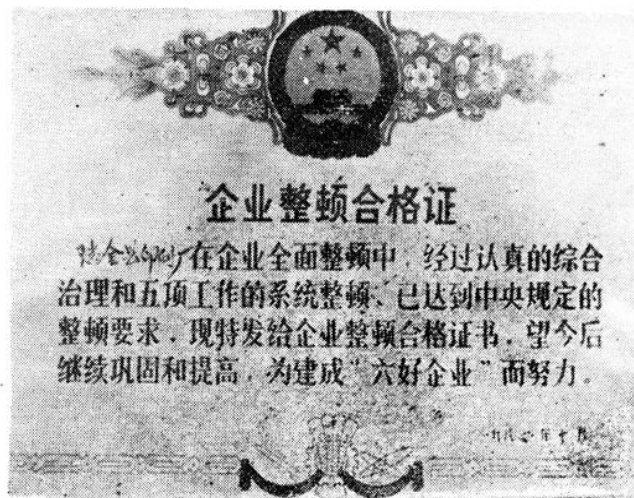 企业整顿合格证
印刷厂在企业全面整顿中，经过认真的综合
治理和五项工作的系统整顿、已达到中央规定的
整顿要求，现特发给企业整顿合格证书，望今后
继续巩固和提高，为建成“六好企业”而努力。